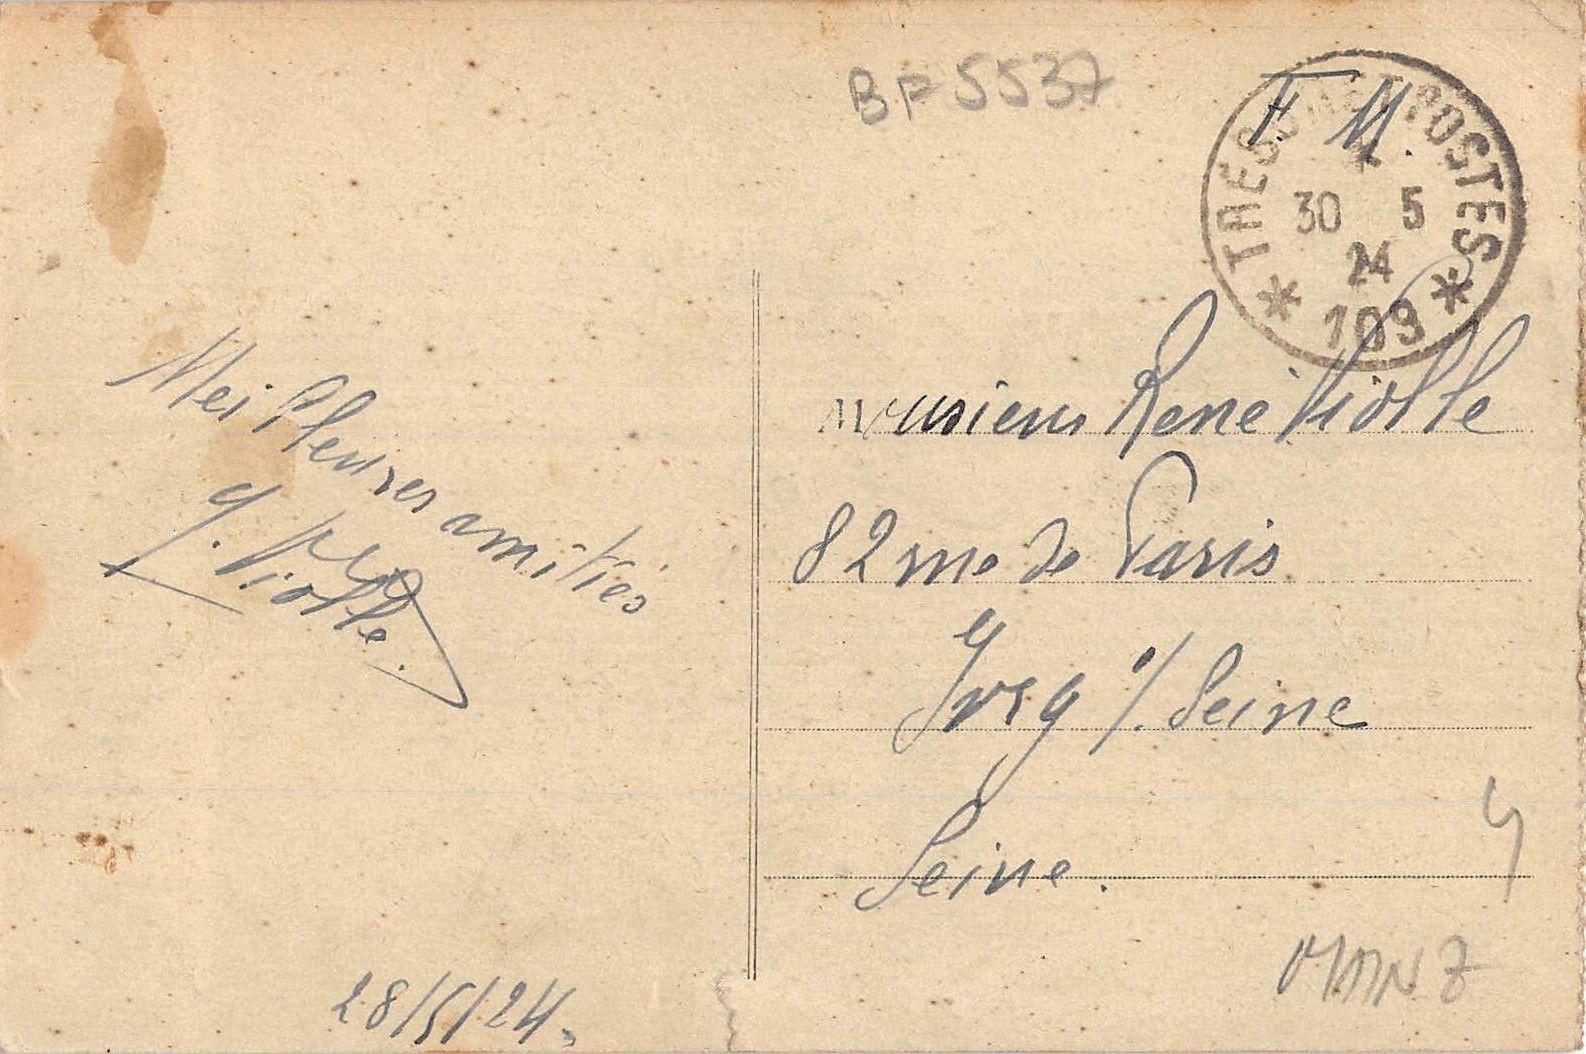 BF5537
F. M.
TRESOR ET POSTES
30 5
24
* 103 *
Meilleures amitiés
Violle.
28/5/24.
Monsieur René Violle
82 rue de Paris
Ivry s/. Seine
Seine.
MAINZ